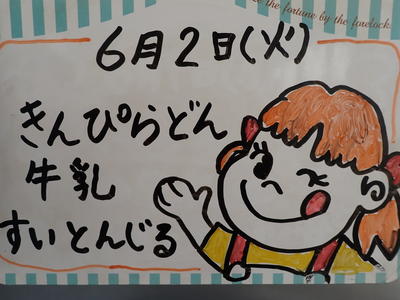 ce the fortune by the forelock.
6月2日(火)
きんぴらどん
牛乳
すいとんじる